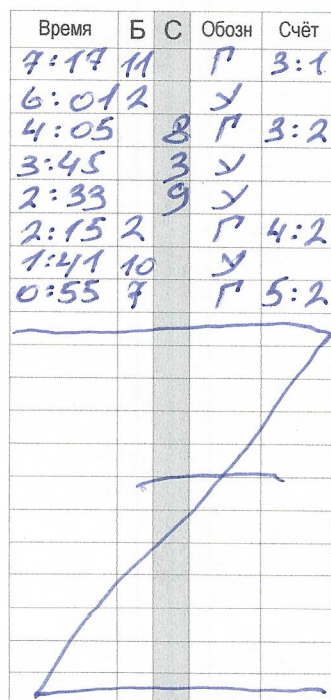 Время Б С Обозн Счёт
7:17 11 Г 3:1
6:01 2 У
4:05 8 Г 3:2
3:45 3 У
2:33 9 У
2:15 2 Г 4:2
1:41 10 У
0:55 7 Г 5:2